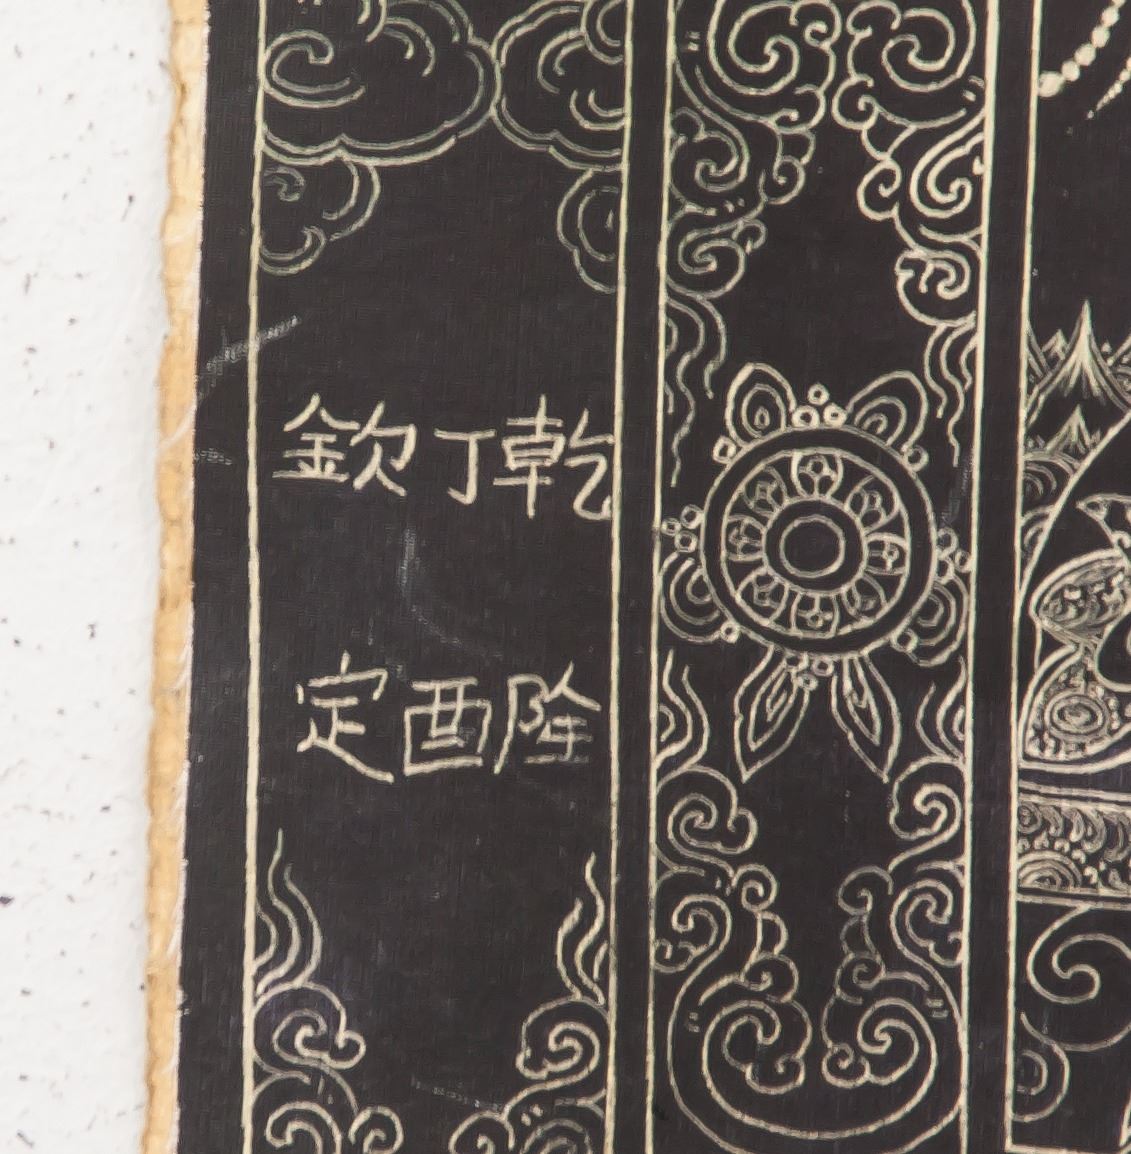 乾隆
丁酉
欽定